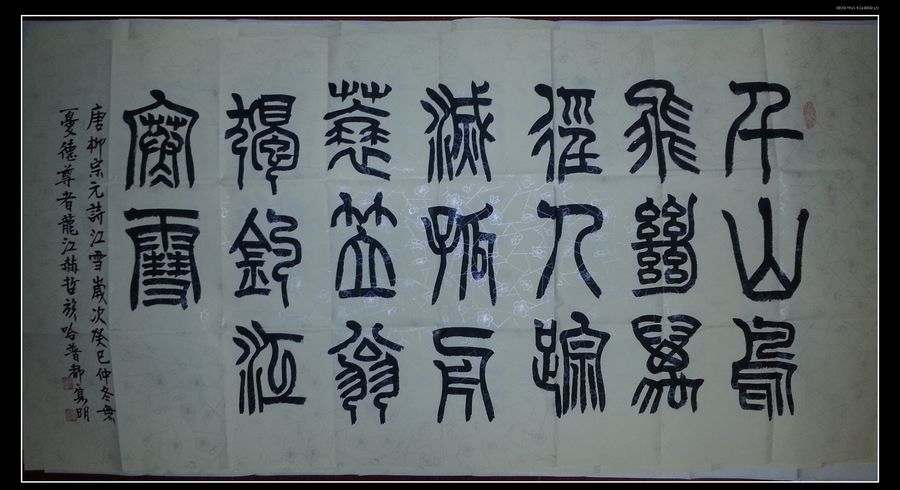 千山鳥
飛絕萬
徑人踪
滅孤舟
蓑笠翁
獨釣江
寒雪
唐柳宗元詩江雪歲次癸巳仲冬無
憂德尊者龍江哲族哈普都明